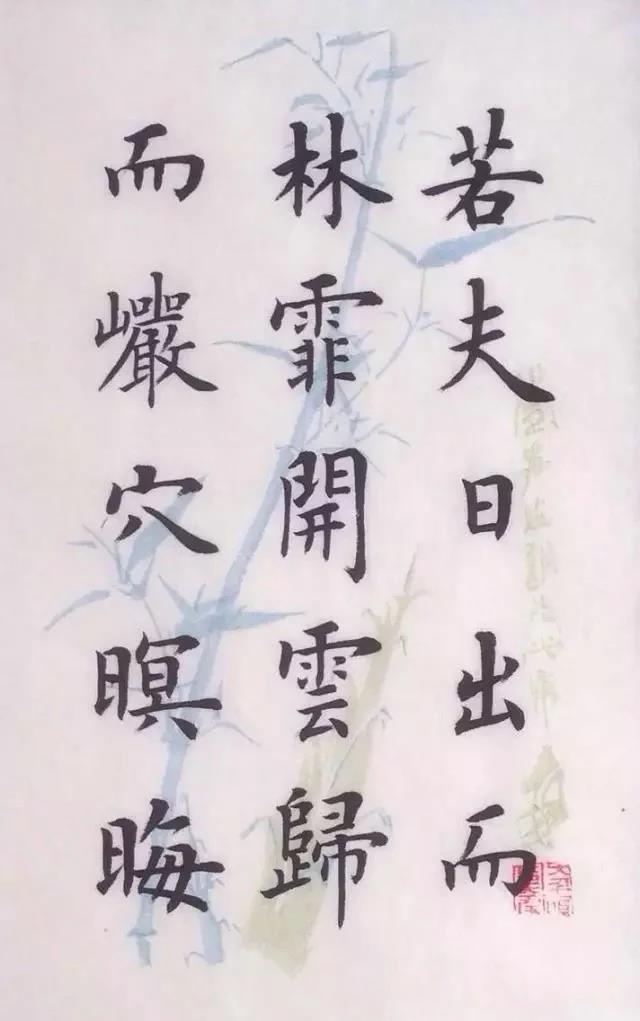 若夫日出而
林霏開雲歸
而巖穴暝晦